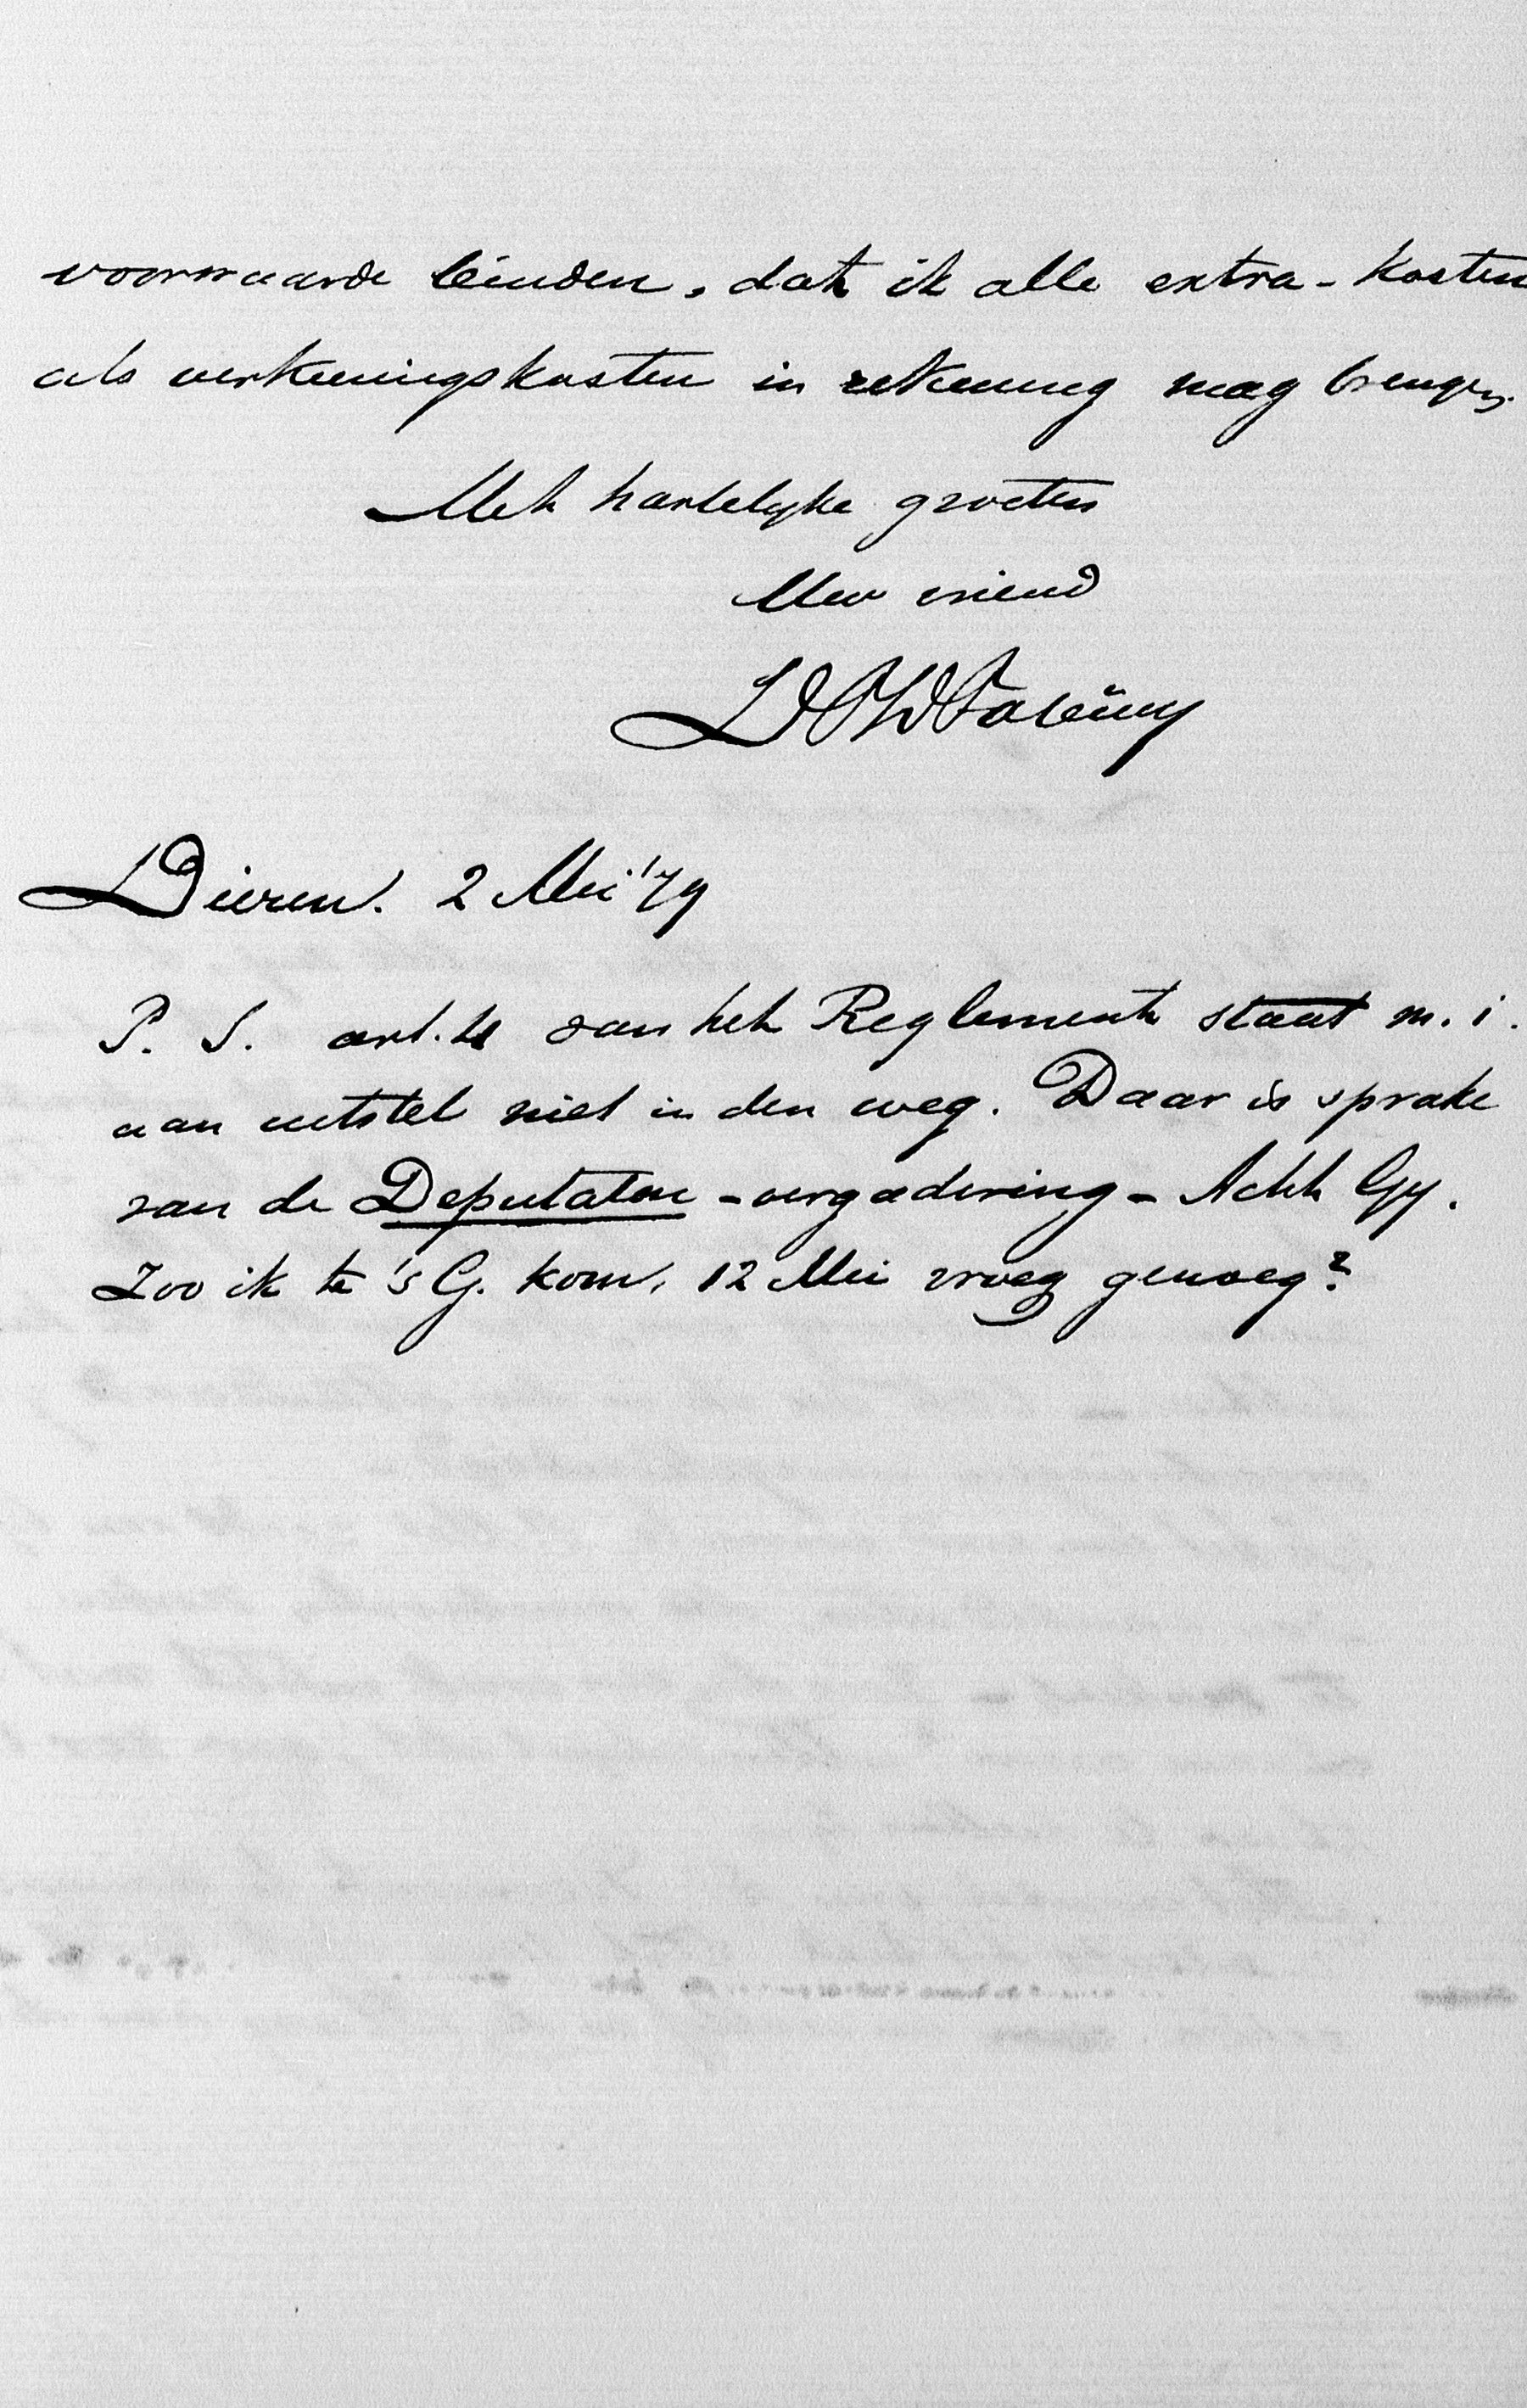 voorwaarde binden, dat ik alle extra-kosten
als verkiezingskosten in rekening mag brengen.
Met hartelijke groeten
Uw vriend
Dieren. 2 Mei '79
P. S. art. van het Reglement staat m. i.
aan uitstel niet in den weg. Daar is sprake
van de Deputaten-vergadering - Acht Gy.
Zoo ik te 's G. kom, 12 Mei vroeg genoeg?